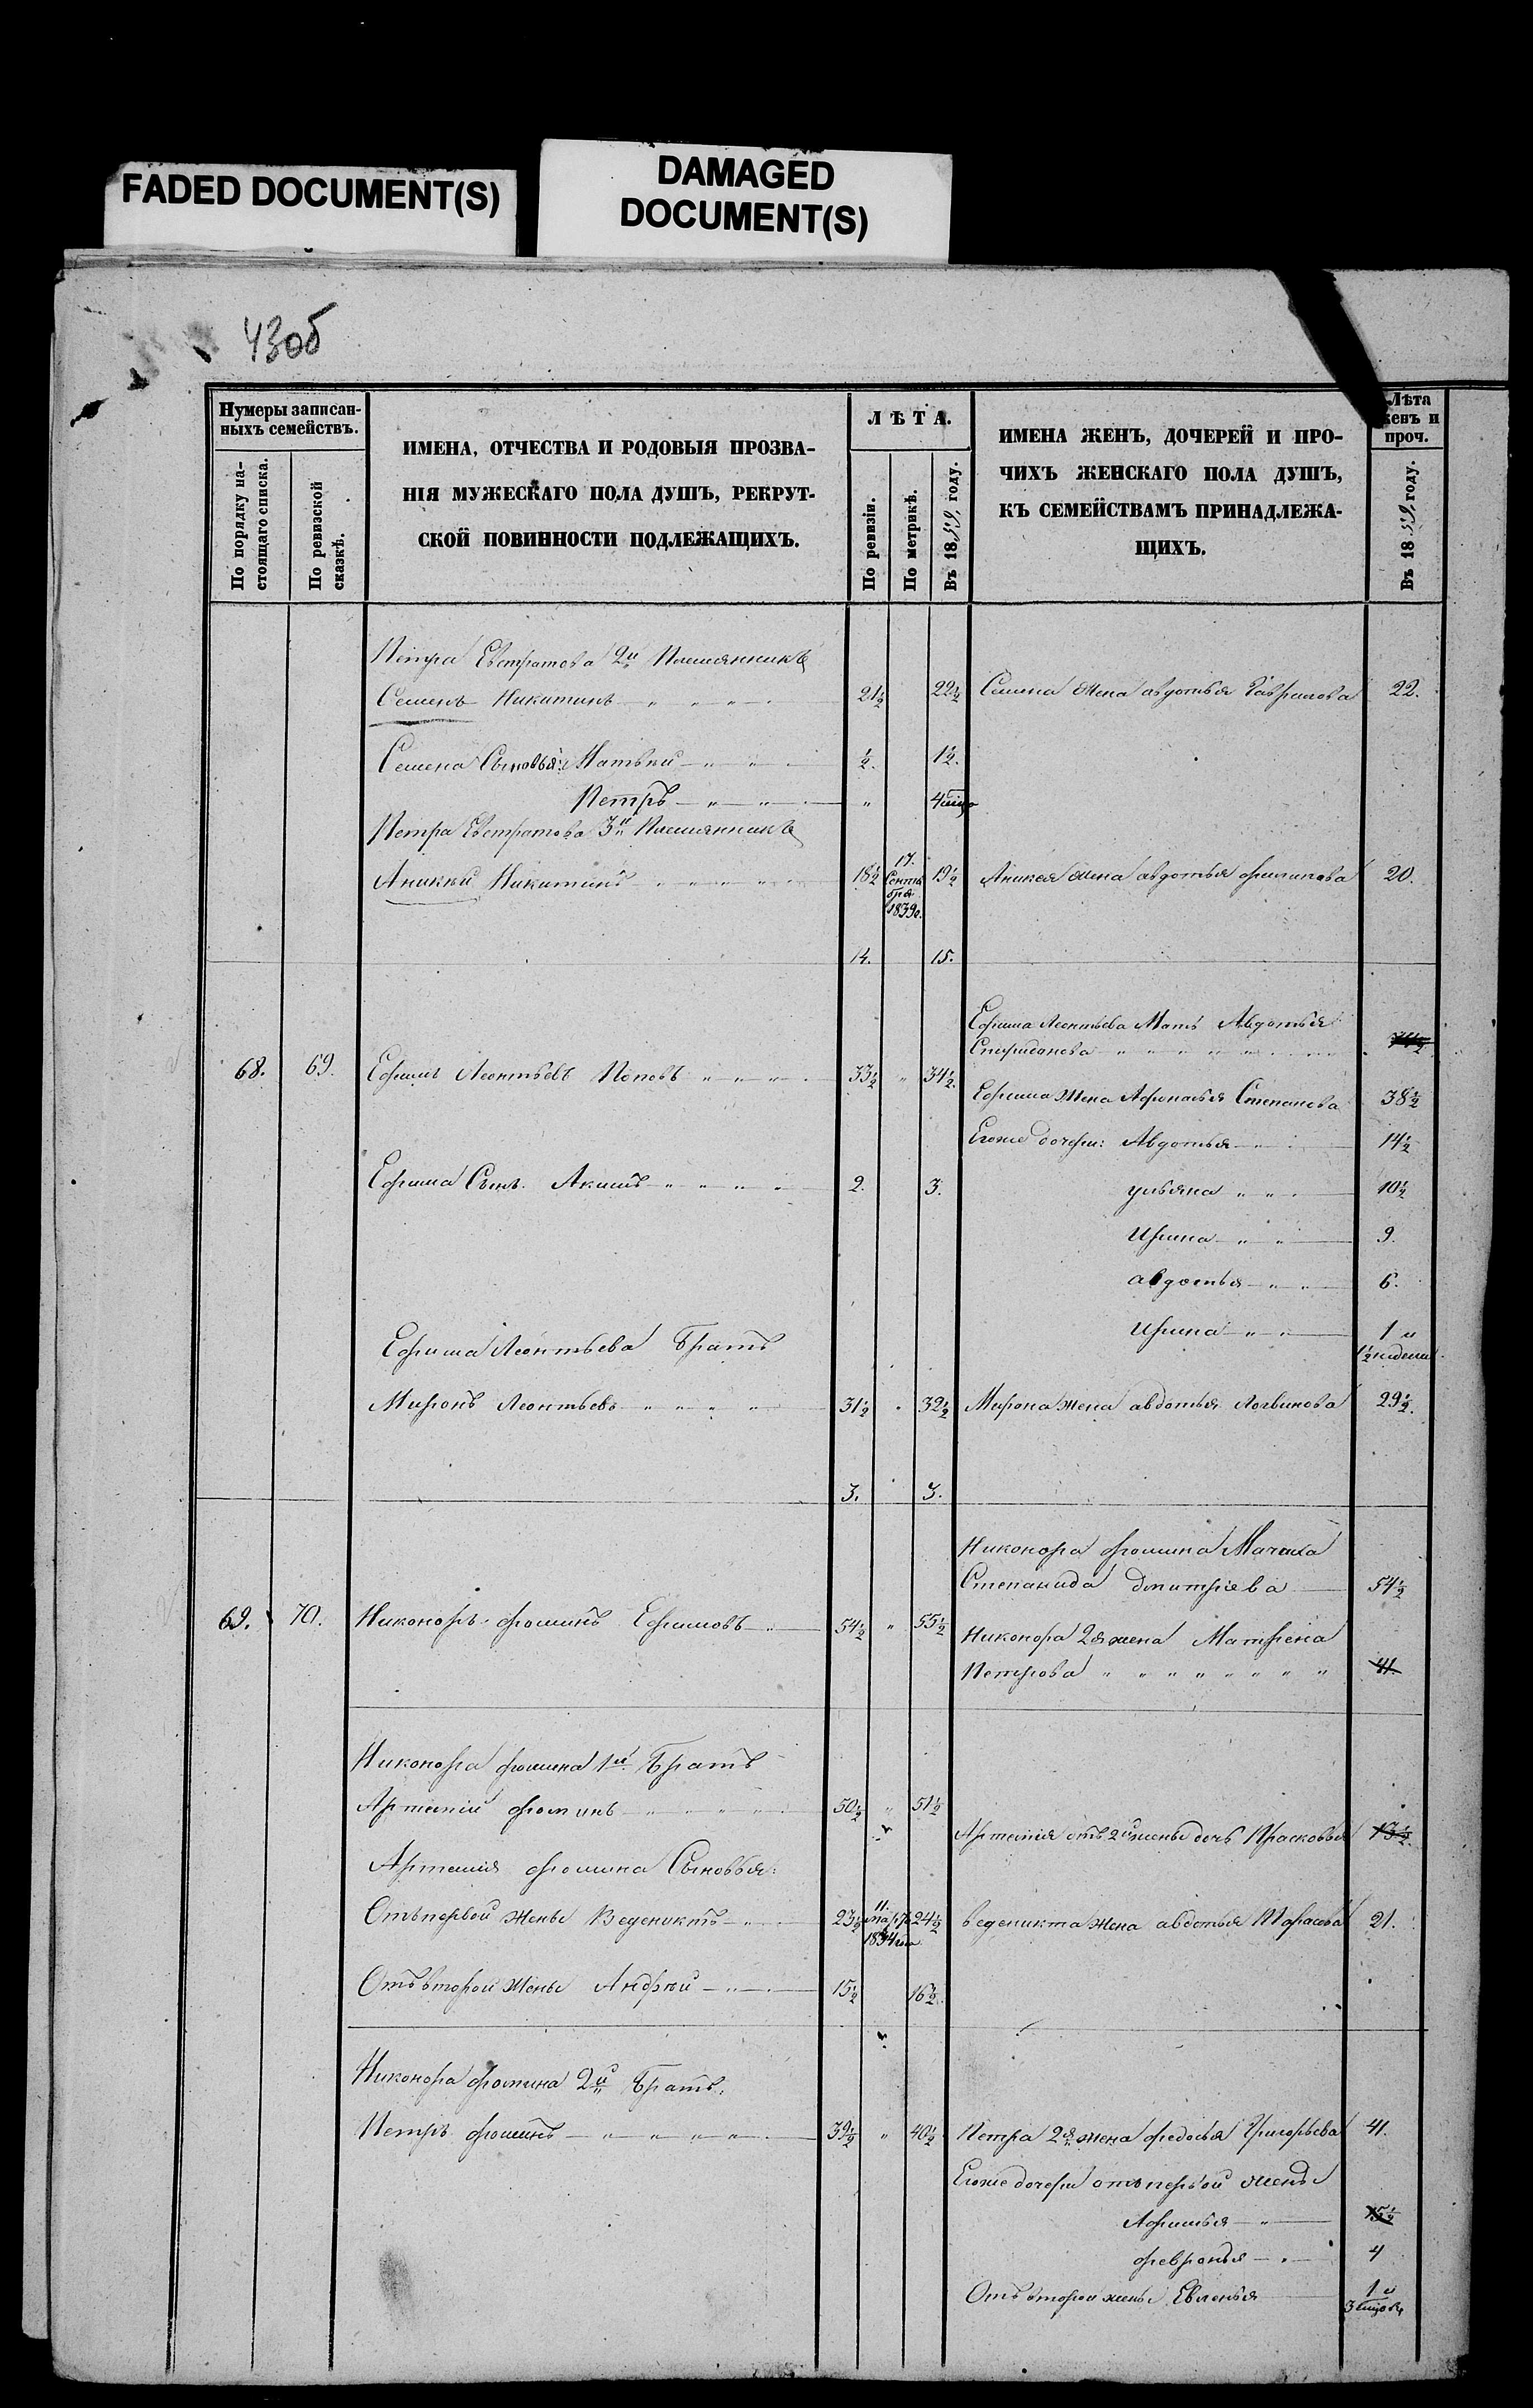 FADED DOCUMENT(S)
DAMAGED
DOCUMENT(S)
43об
Нумеры записан-
ныхъ семействъ.
По порядку на-
стоящаго списка.
По ревизской
сказкѣ.
ИМЕНА, ОТЧЕСТВА И РОДОВЫЯ ПРОЗВА-
НІЯ МУЖЕСКАГО ПОЛА ДУШЪ, РЕКРУТ-
СКОЙ ПОВИННОСТИ ПОДЛЕЖАЩИХЪ.
ЛѢТА.
По ревизіи.
По метрикѣ.
Въ 1859 году.
ИМЕНА ЖЕНЪ, ДОЧЕРЕЙ И ПРО-
ЧИХЪ ЖЕНСКАГО ПОЛА ДУШЪ,
КЪ СЕМЕЙСТВАМЪ ПРИНАДЛЕЖА-
ЩИХЪ.
Лѣта
женъ и
проч.
Въ 1859 году.
Петра Евстратова 2й Племянникъ
Семенъ Никитинъ 21½ 22½ Семена Жена авдотья Гаврилова 22.
Семена Сыновья: Матвѣй ½. 1½.
Петръ " 4
Петра Евстратова 3й Племянникъ
Аникѣй Никитинъ 18½ 17. Сентя
бря
1839. 19½ Аникея жена авдотья филипова 20.
14. 15.
Ефима Леонтьева Мать Авдотья
68. 69. Ефимъ Леонтьевъ Поповъ 33½ " 34½.
Ефима Жена Афонасья Степанова 38½
Егоже дочери: Авдотья 14½
Ефима Сынъ Акимъ 2. 3. ульяна 10½
Ирина 9.
авдотья 6.
Ирина 1 и
1½ недели
Ефима Леонтьева Братъ
Миронъ Леонтьевъ 31½ 32½ Мирона жена авдотья Логвинова 29½.
3. 3.
Никонора фомина Мачиха
Степанида дмитріева 54½
69. 70. Никоноръ фоминъ Ефимовъ 54½ " 55½
Никонора 2я жена Матрена
Петрова 41.
Никонора фомина 1й Братъ
Артемій фоминъ 50½ " 51½
Артемія отъ 2й жены дочь Прасковья 13½.
Артемія фомина Сыновья:
Отъ первой жены Ведениктъ 23½ 11.
марта
1834 года 24½ веденикта жена авдотья 21.
Отъ второй жены Андрей 15½ 16½.
Никонора фомина 2й Братъ.
Петръ фоминъ 39½ " 40½ Петра 2я жена федосья Григорьева 41.
Егоже дочери отъ первой жены
Афимья 15½
февронья 4
Отъ второй жены Евленья 1 и
3 мѣсяца